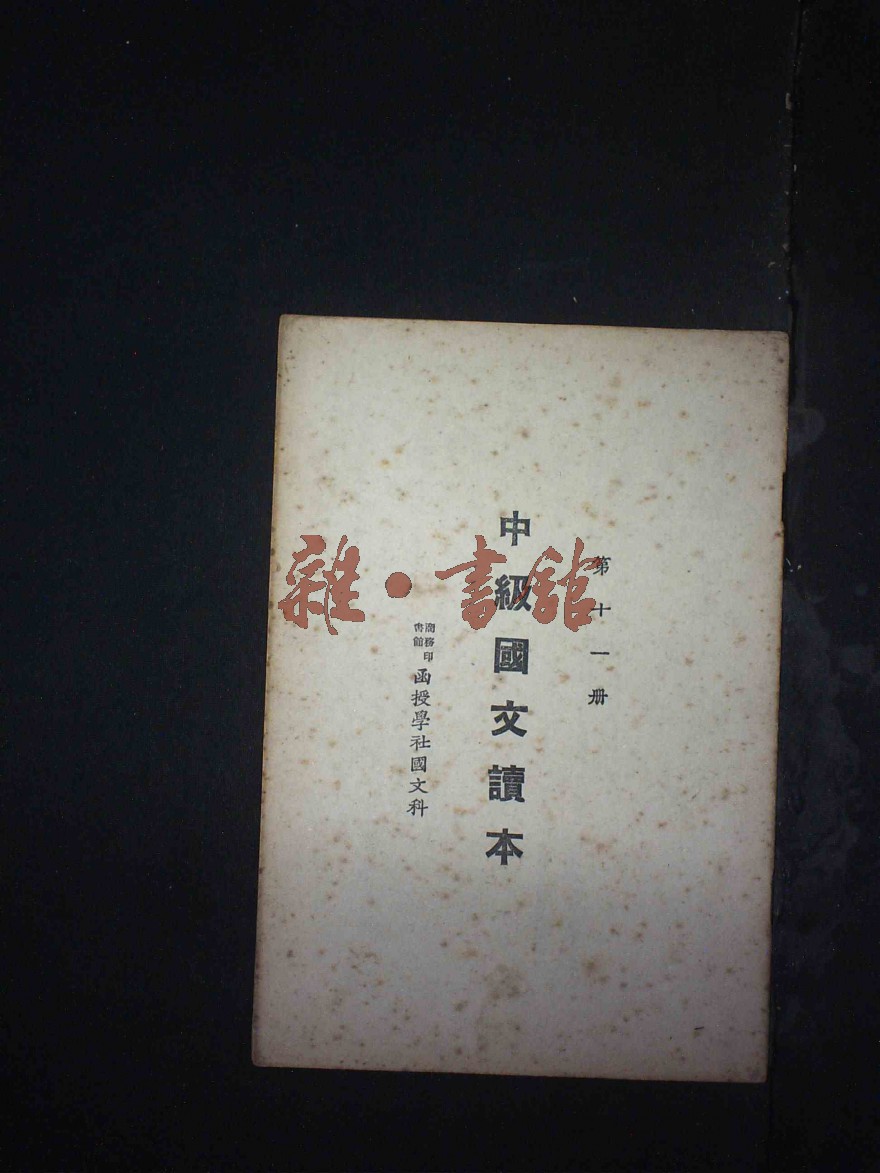 第十一册
中級國文讀本
商務印書館
函授學社國文科
雜·書館